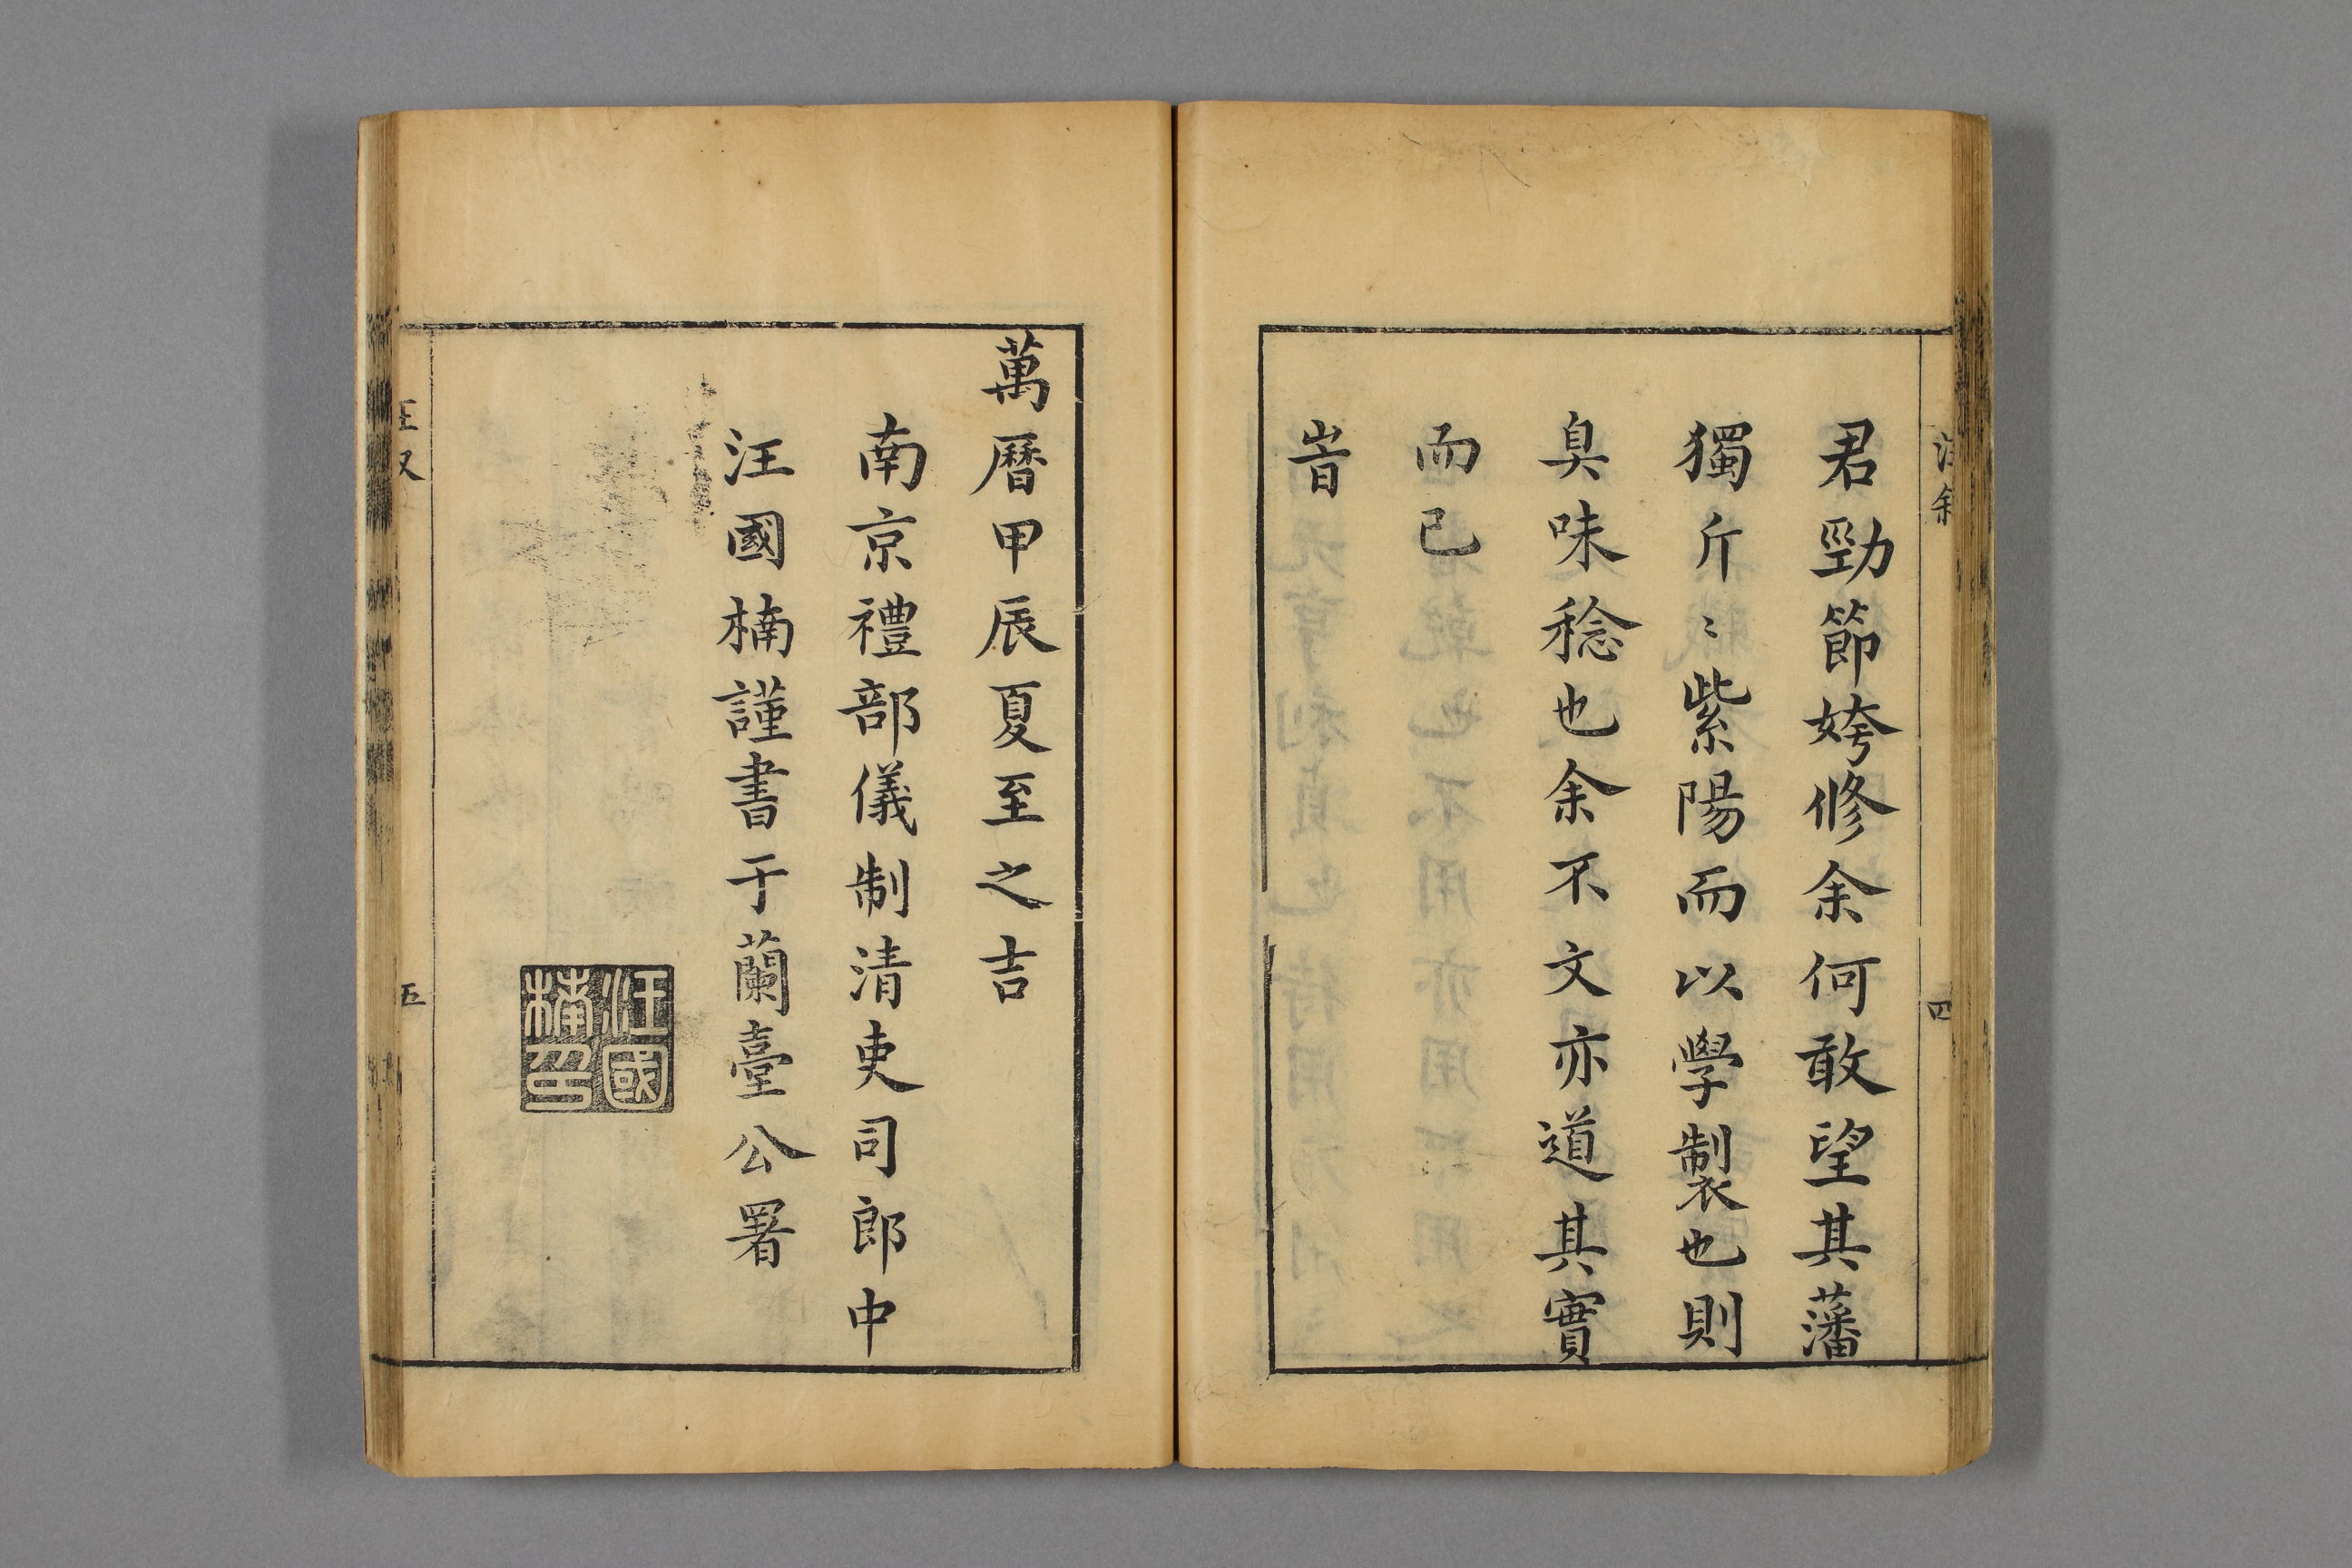 君勁節姱修余何敢望其藩
獨斤〻紫陽而以學製也則
臭味稔也余不文亦道其實
而已
旹
四
萬曆甲辰夏至之吉
南京禮部儀制清吏司郎中
汪國楠謹書于蘭臺公署
汪國
楠印
五